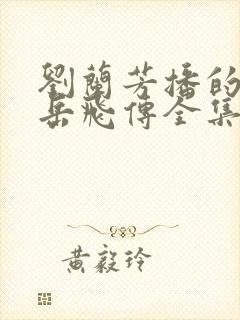 劉蘭芳播的
岳飛傳全集
黃毅玲